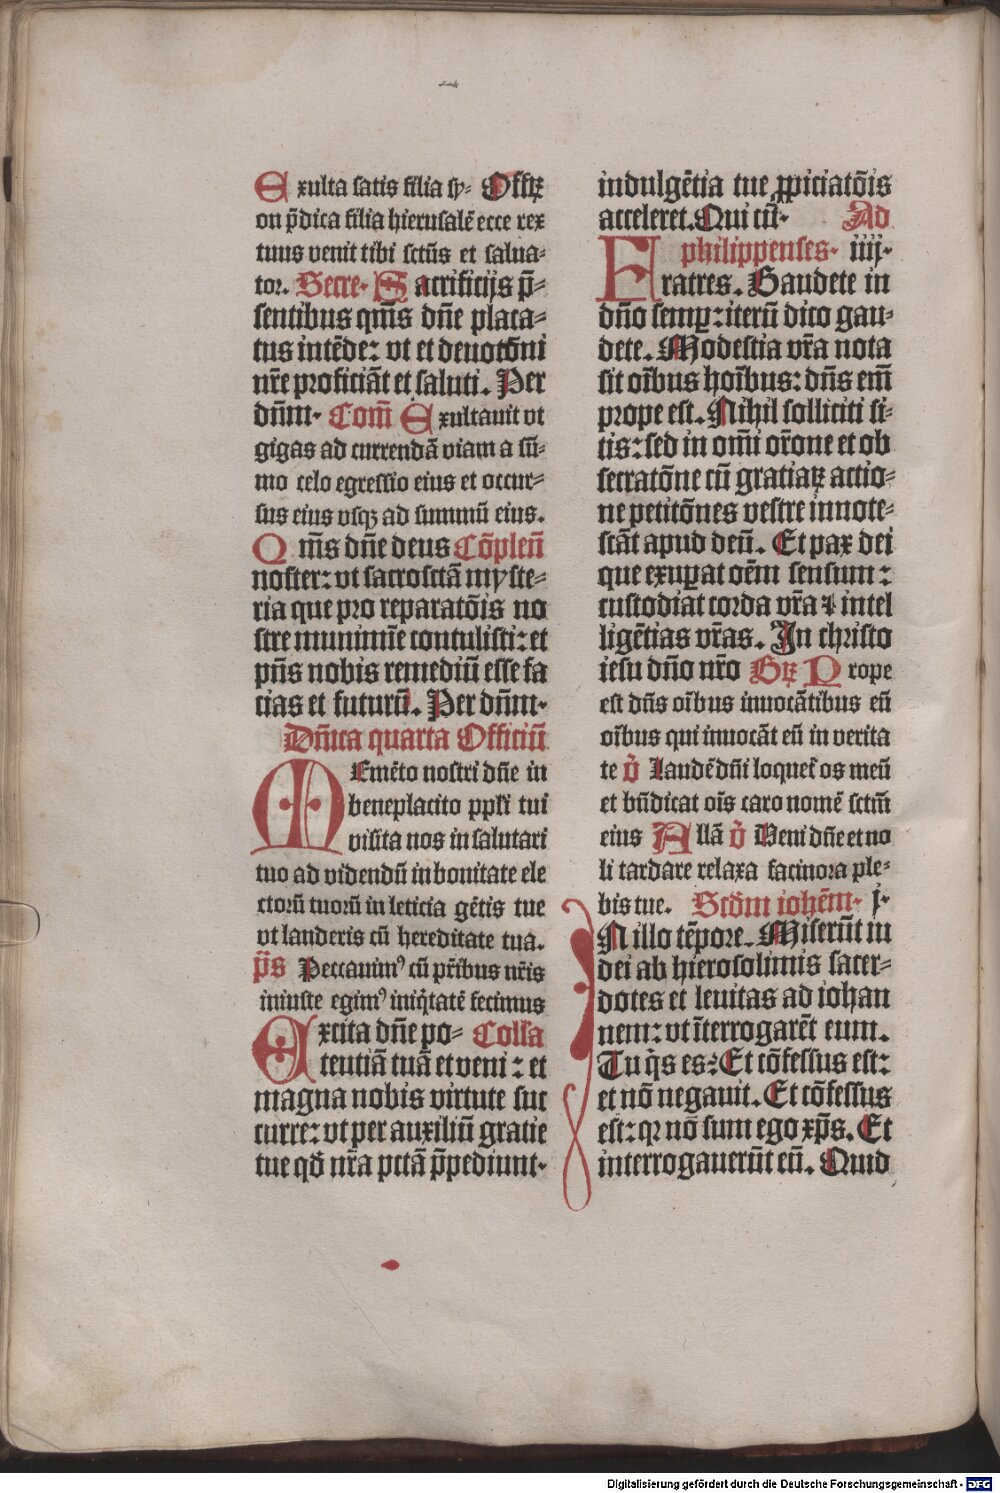 Exulta satis filia sy⸗ Offꝝ
on p̄dica filia hierusalē ecce rex
tuus venit tibi sctūs et salua⸗
tor. Secre. Sacrificijs p̄⸗
sentibus qm̄s dn̄e placa⸗
tus intēde: vt et deuotōni
nr̄e proficiāt et saluti. Per
dn̄m. Com̄ Exultauit vt
gigas ad currendā viam a sū⸗
mo celo egressio eius et occur⸗
sus eius vsqꝫ ad summū eius.
Qm̄s dn̄e deus Cōplen̄
noster: vt sacrosctā myste⸗
ria que pro reparatōis no
stre munimīe contulisti: et
pn̄s nobis remediū esse fa
cias et futurū. Per dn̄m.
Dn̄ica quarta Officiū
MEmēto nostri dn̄e in
beneplacito pplī tui
visita nos in salutari
tuo ad videndū in bonitate ele
ctorū tuorū in leticia gētis tue
vt landeris cū hereditate tua.
p̄s Peccauimꝰ cū pr̄ibus nr̄is
iniuste egimꝰ iniq̄tatē fecimus
Excita dn̄e po⸗ Collā
tentiā tuā et veni: et
magna nobis virtute suc
curre: vt per auxiliū gratie
tue qd̄ nr̄a pctā p̄pediunt.
indulgētia tue ꝓpiciatōis
acceleret. Qui cū. Ad
philippenses. iiij.
Fratres. Gaudete in
dn̄o semꝑ: iterū dico gau⸗
dete. Modestia vr̄a nota
sit oībus hoībus: dn̄s em̄
prope est. Nihil solliciti si⸗
tis: sed in om̄i or̄one et ob
secratōne cū gratiaꝝ actio⸗
ne petitōnes vestre innote⸗
scāt apud deū. Et pax dei
que exuꝑat oēm sensum:
custodiat corda vr̄a ⁊ intel
ligētias vr̄as. In christo
iesu dn̄o nr̄o Gꝝ Prope
est dn̄s oībus inuocātibus eū
oībus qui inuocāt eū in verita
te v̄ Laudē dn̄i loquet̄ os meū
et bn̄dicat oīs caro nomē sctm̄
eius Allā v̄ Veni dn̄e et no
li tardare relaxa facinora ple⸗
bis tue. Scd̄m iohēm. j.
IN illo tēpore. Miserūt iu
dei ab hierosolimis sacer⸗
dotes et leuitas ad iohan
nem: vt īterrogarēt eum.
Tu q̄s es? Et cōfessus est:
et nō negauit. Et cōfessus
est: qꝛ nō sum ego xp̄s. Et
interrogauerūt eū. Quid
Digitalisierung gefördert durch die Deutsche Forschungsgemeinschaft - DFG